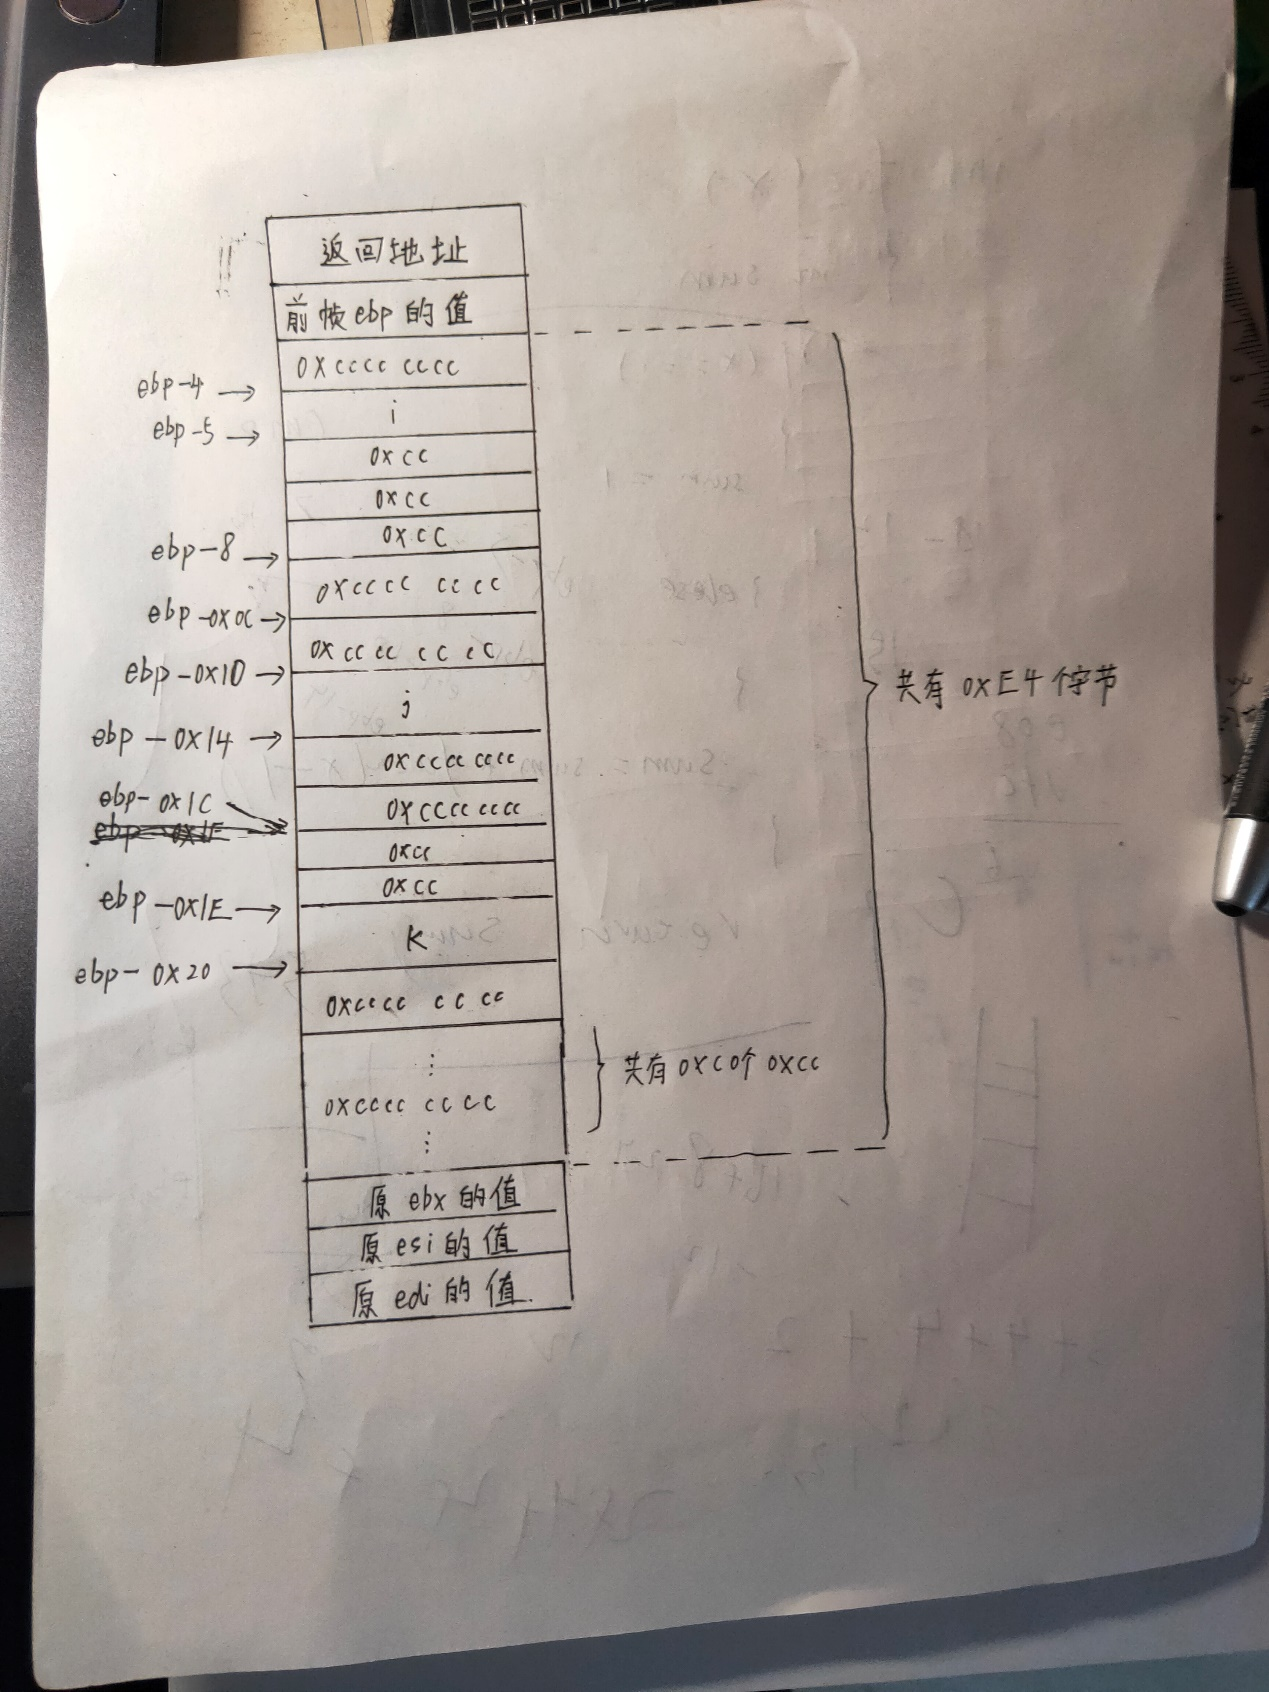 返回地址
前帧ebp的值
0Xcccc cccc
ebp-4 →
i
ebp-5 →
0xcc
0xcc
0xcc
ebp-8 →
0xcccc cccc
ebp-0x0C →
0xcccc cccc
ebp-0x10 →
j
ebp-0x14 →
0xcccc cccc
ebp-0x1C
0xcccc cccc
0xcc
0xcc
ebp-0x1E →
K
ebp-0x20 →
0xcccc cccc
⋮
共有0xC0个 0xCC
0xcccc cccc
⋮
共有 0xE4个字节
原 ebx 的值
原 esi 的值
原 edi 的值.